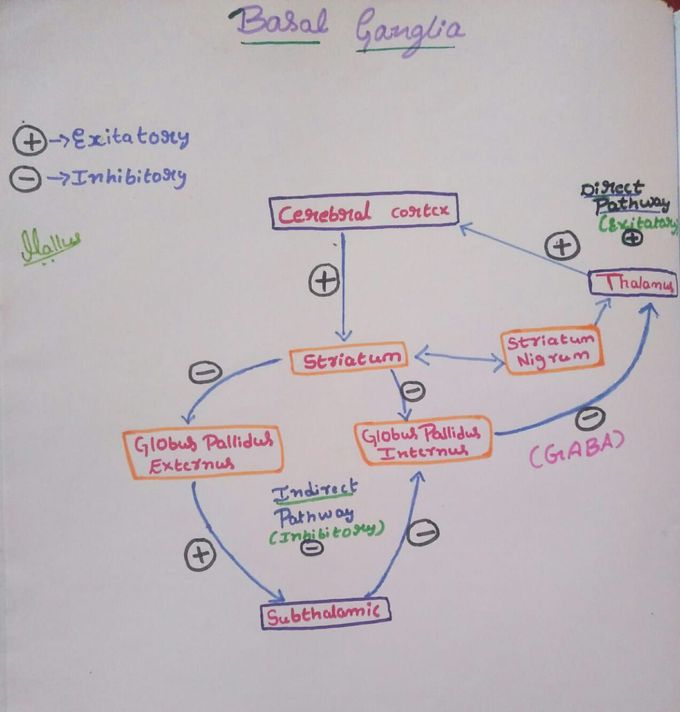 Basal Ganglia
+ → Exitatory
- → Inhibitory
Mallus
Direct
Pathway
(Exitatory)
+
Cerebral cortex
+
+
Thalamus
Striatum
Striatum
Nigrum
-
-
Globus Pallidus
Externus
Globus Pallidus
Internus
-
(GABA)
Indirect
Pathway
(Inhibitory)
-
+
-
Subthalamic